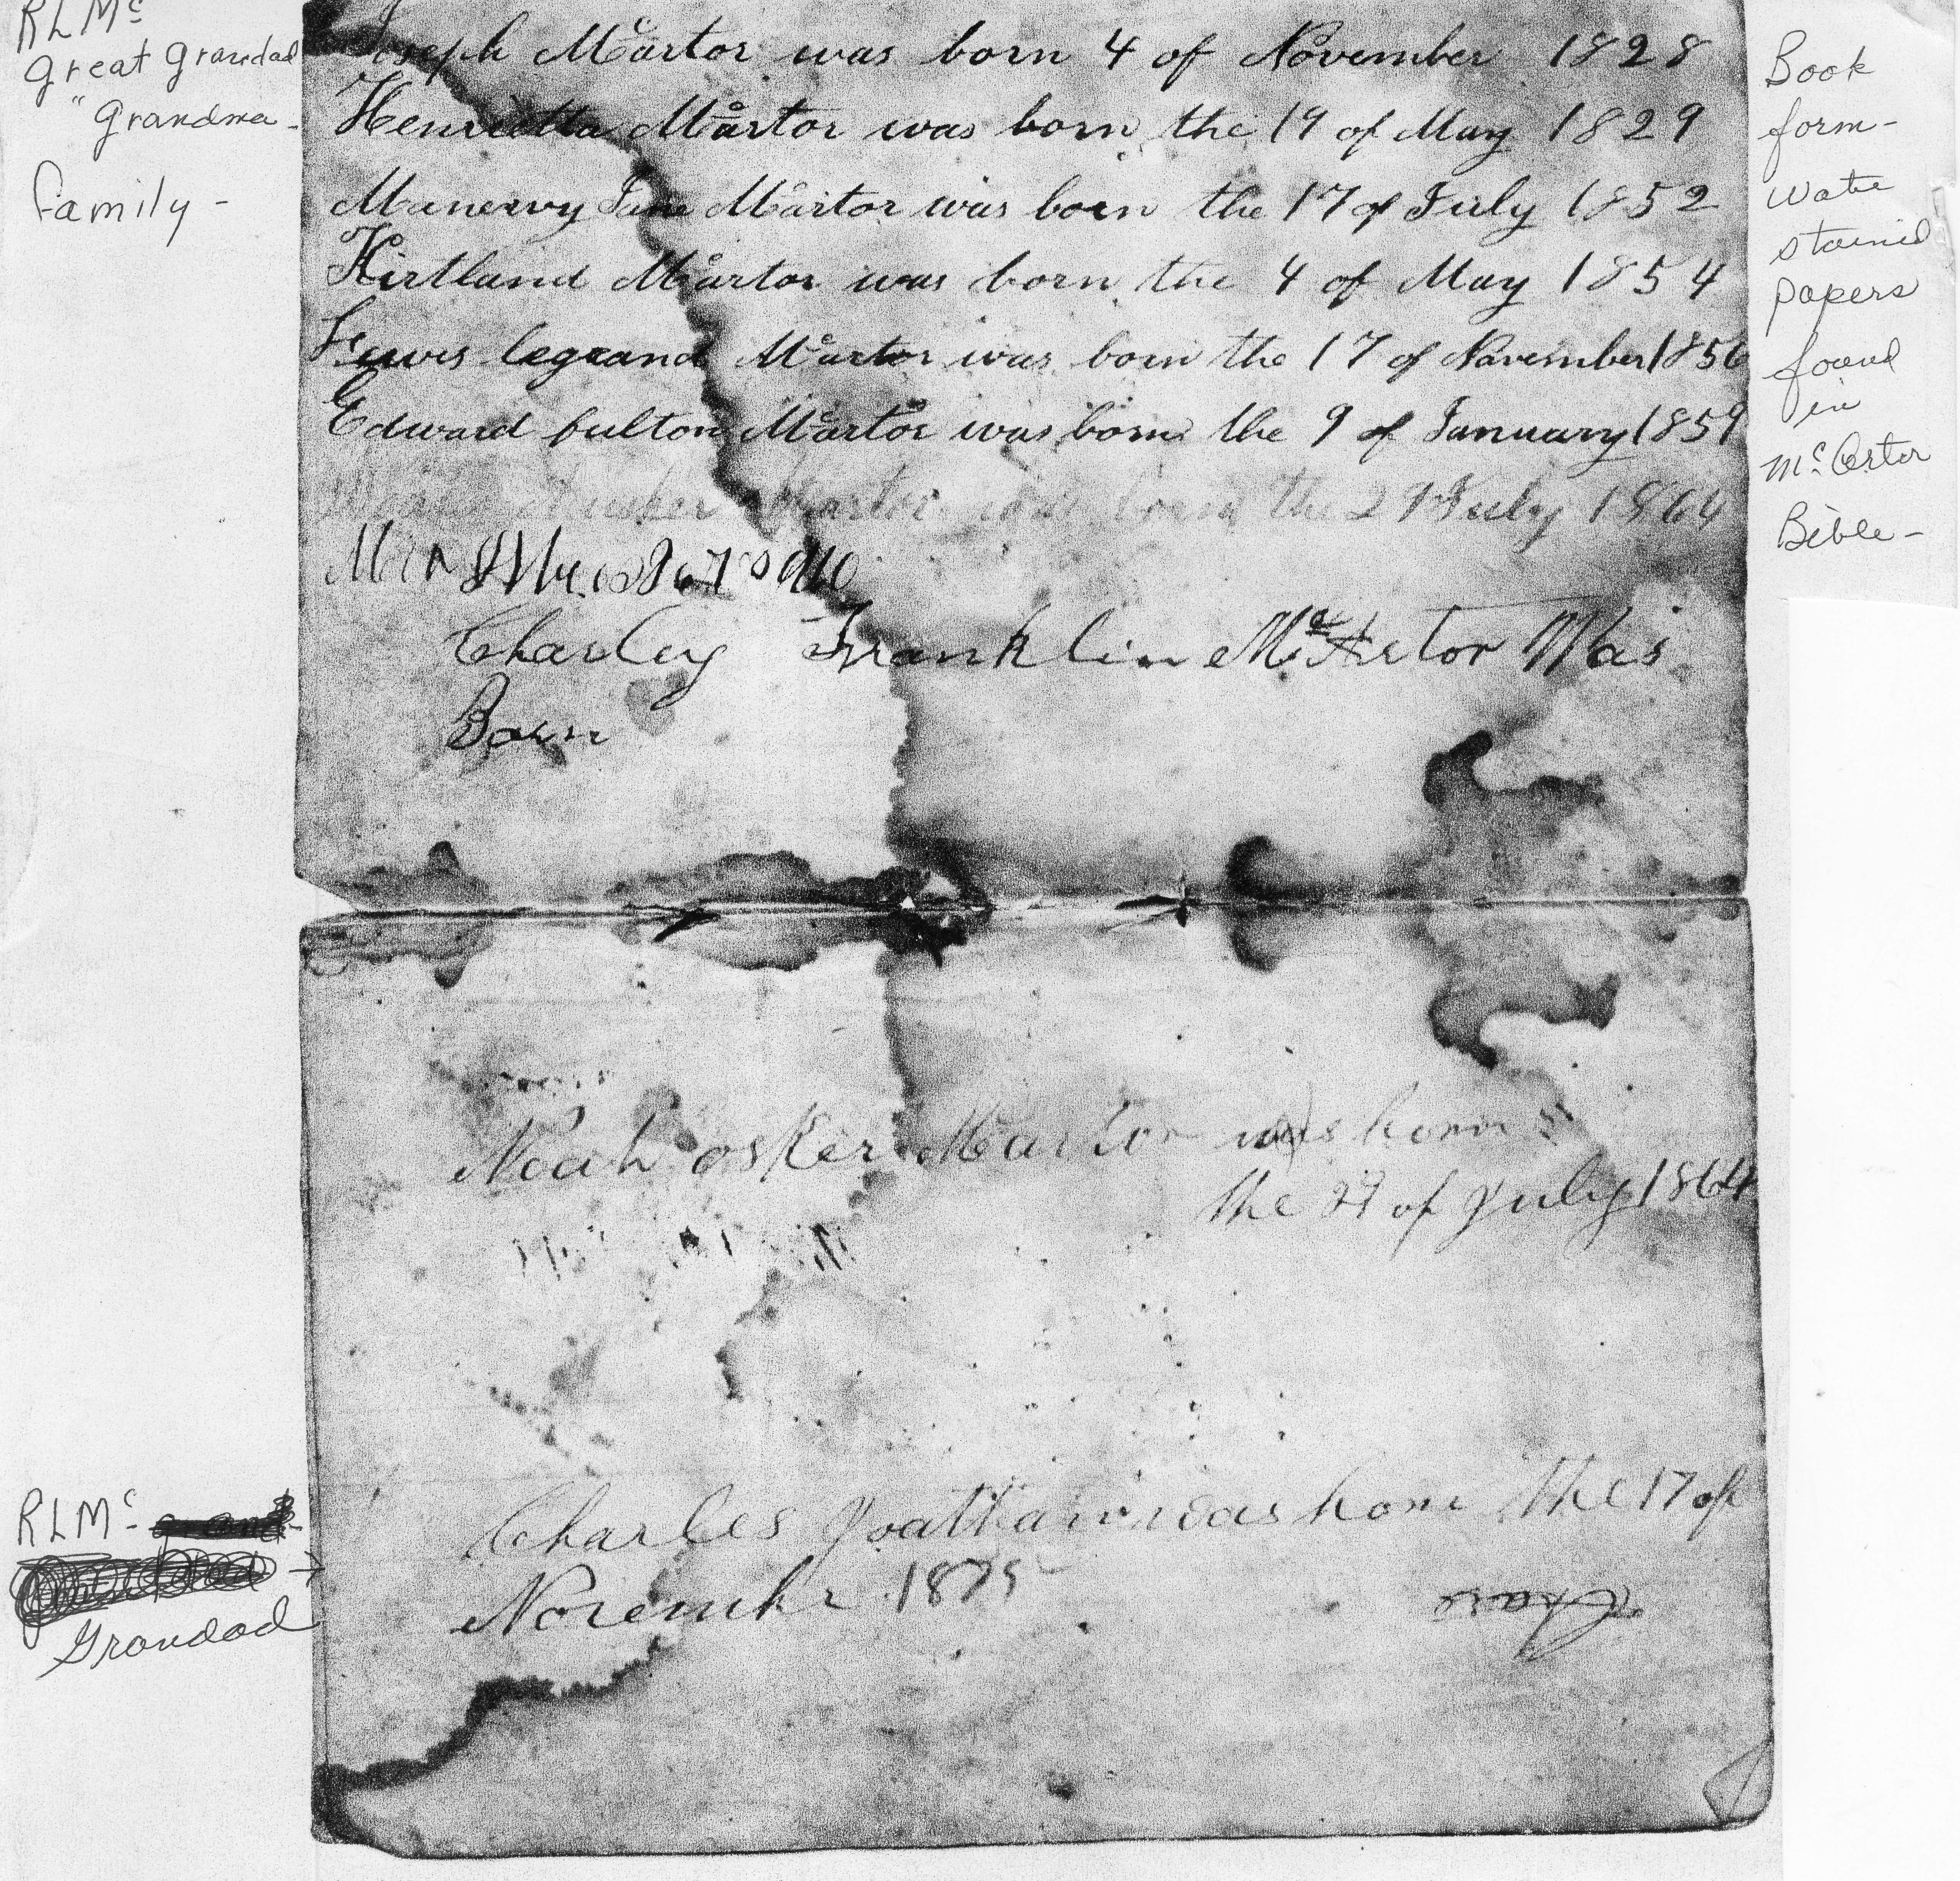 RLMc
great grandad
" grandma -
family -
Joseph Mcartor was born 4 of November 1828
Henrietta Mcartor was born the 19 of May 1829
Manervy Jane Mcartor was born the 17 of July 1852
Kirtland Mcartor was born the 4 of May 1854
Lewis legrand Mcartor was born the 17 of November 1856
Edward fulton Mcartor was born the 9 of January 1859
Mcartor was born the 29 July 1864
Charley Franklin McArtor Was
Born
Book
form -
water
stained
papers
found
in
McArtor
Bible -
Noah osker Mcartor was born
the 29 of July 1864
Charles Joatham was born the 17 of
November 1875
RLMc -
Grandad